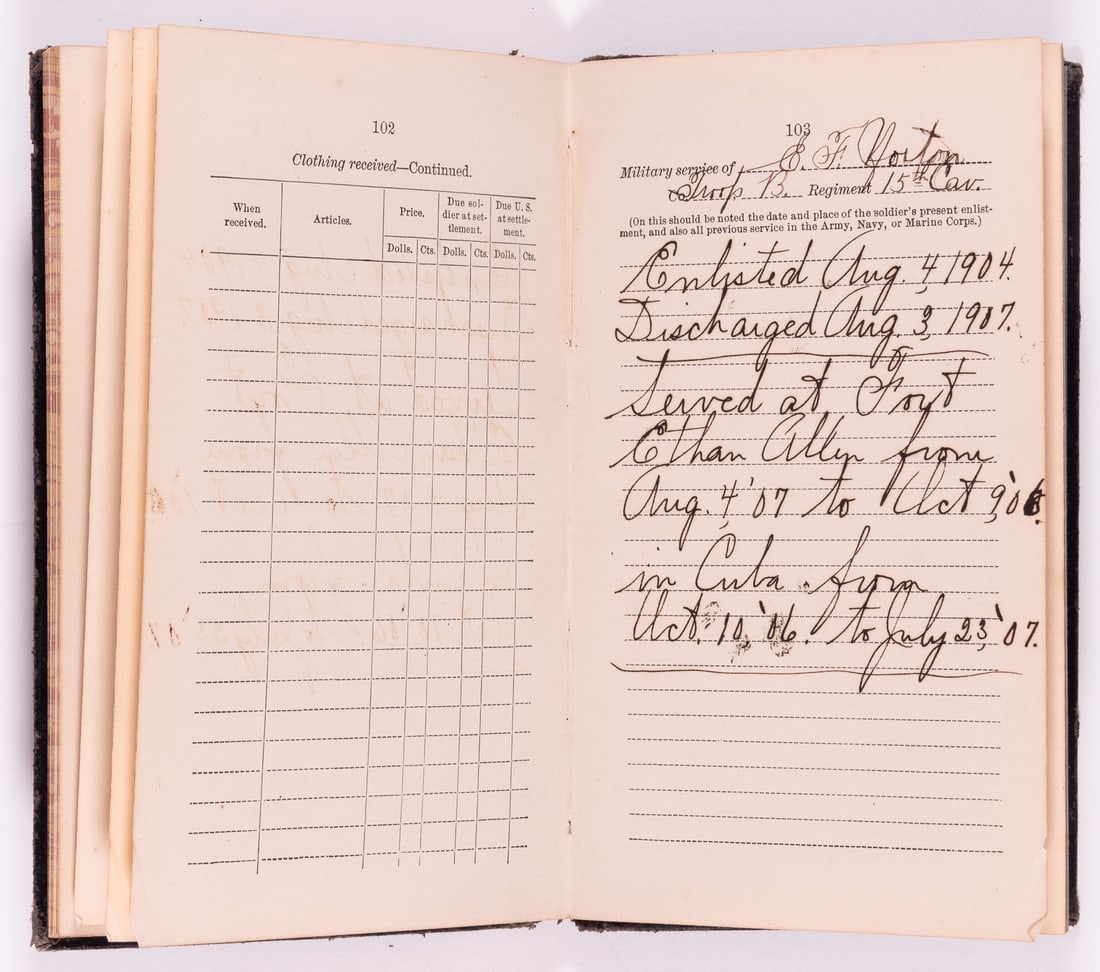 102
Clothing received—Continued.
When received.
Articles.
Price.
Due soldier at settlement.
Due U. S. at settlement.
Dolls. Cts. Dolls. Cts. Dolls. Cts.
103
Military service of E. F. Horton
Troop B. Regiment 15th Cav.
(On this should be noted the date and place of the soldier's present enlist-
ment, and also all previous service in the Army, Navy, or Marine Corps.)
Enlisted Aug. 4, 1904.
Discharged Aug. 3, 1907.
Served at Fort
Ethan Allen from
Aug. 4, '07 to Oct 9, '06.
in Cuba from
Oct. 10, '06. to July 23, '07.